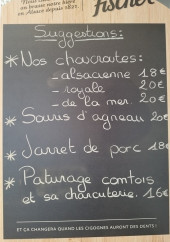 en Alsace depuis 1821.
fischer
Suggestions:
* Nos choucroutes:
- alsacienne 18€
- royale 20€
- de la mer. 20€
* Souris d'agneau 20€
* Jarret de porc 18€
* Paturage comtois
et sa charcuterie. 16€
ET ÇA CHANGERA QUAND LES CIGOGNES AURONT DES DENTS !